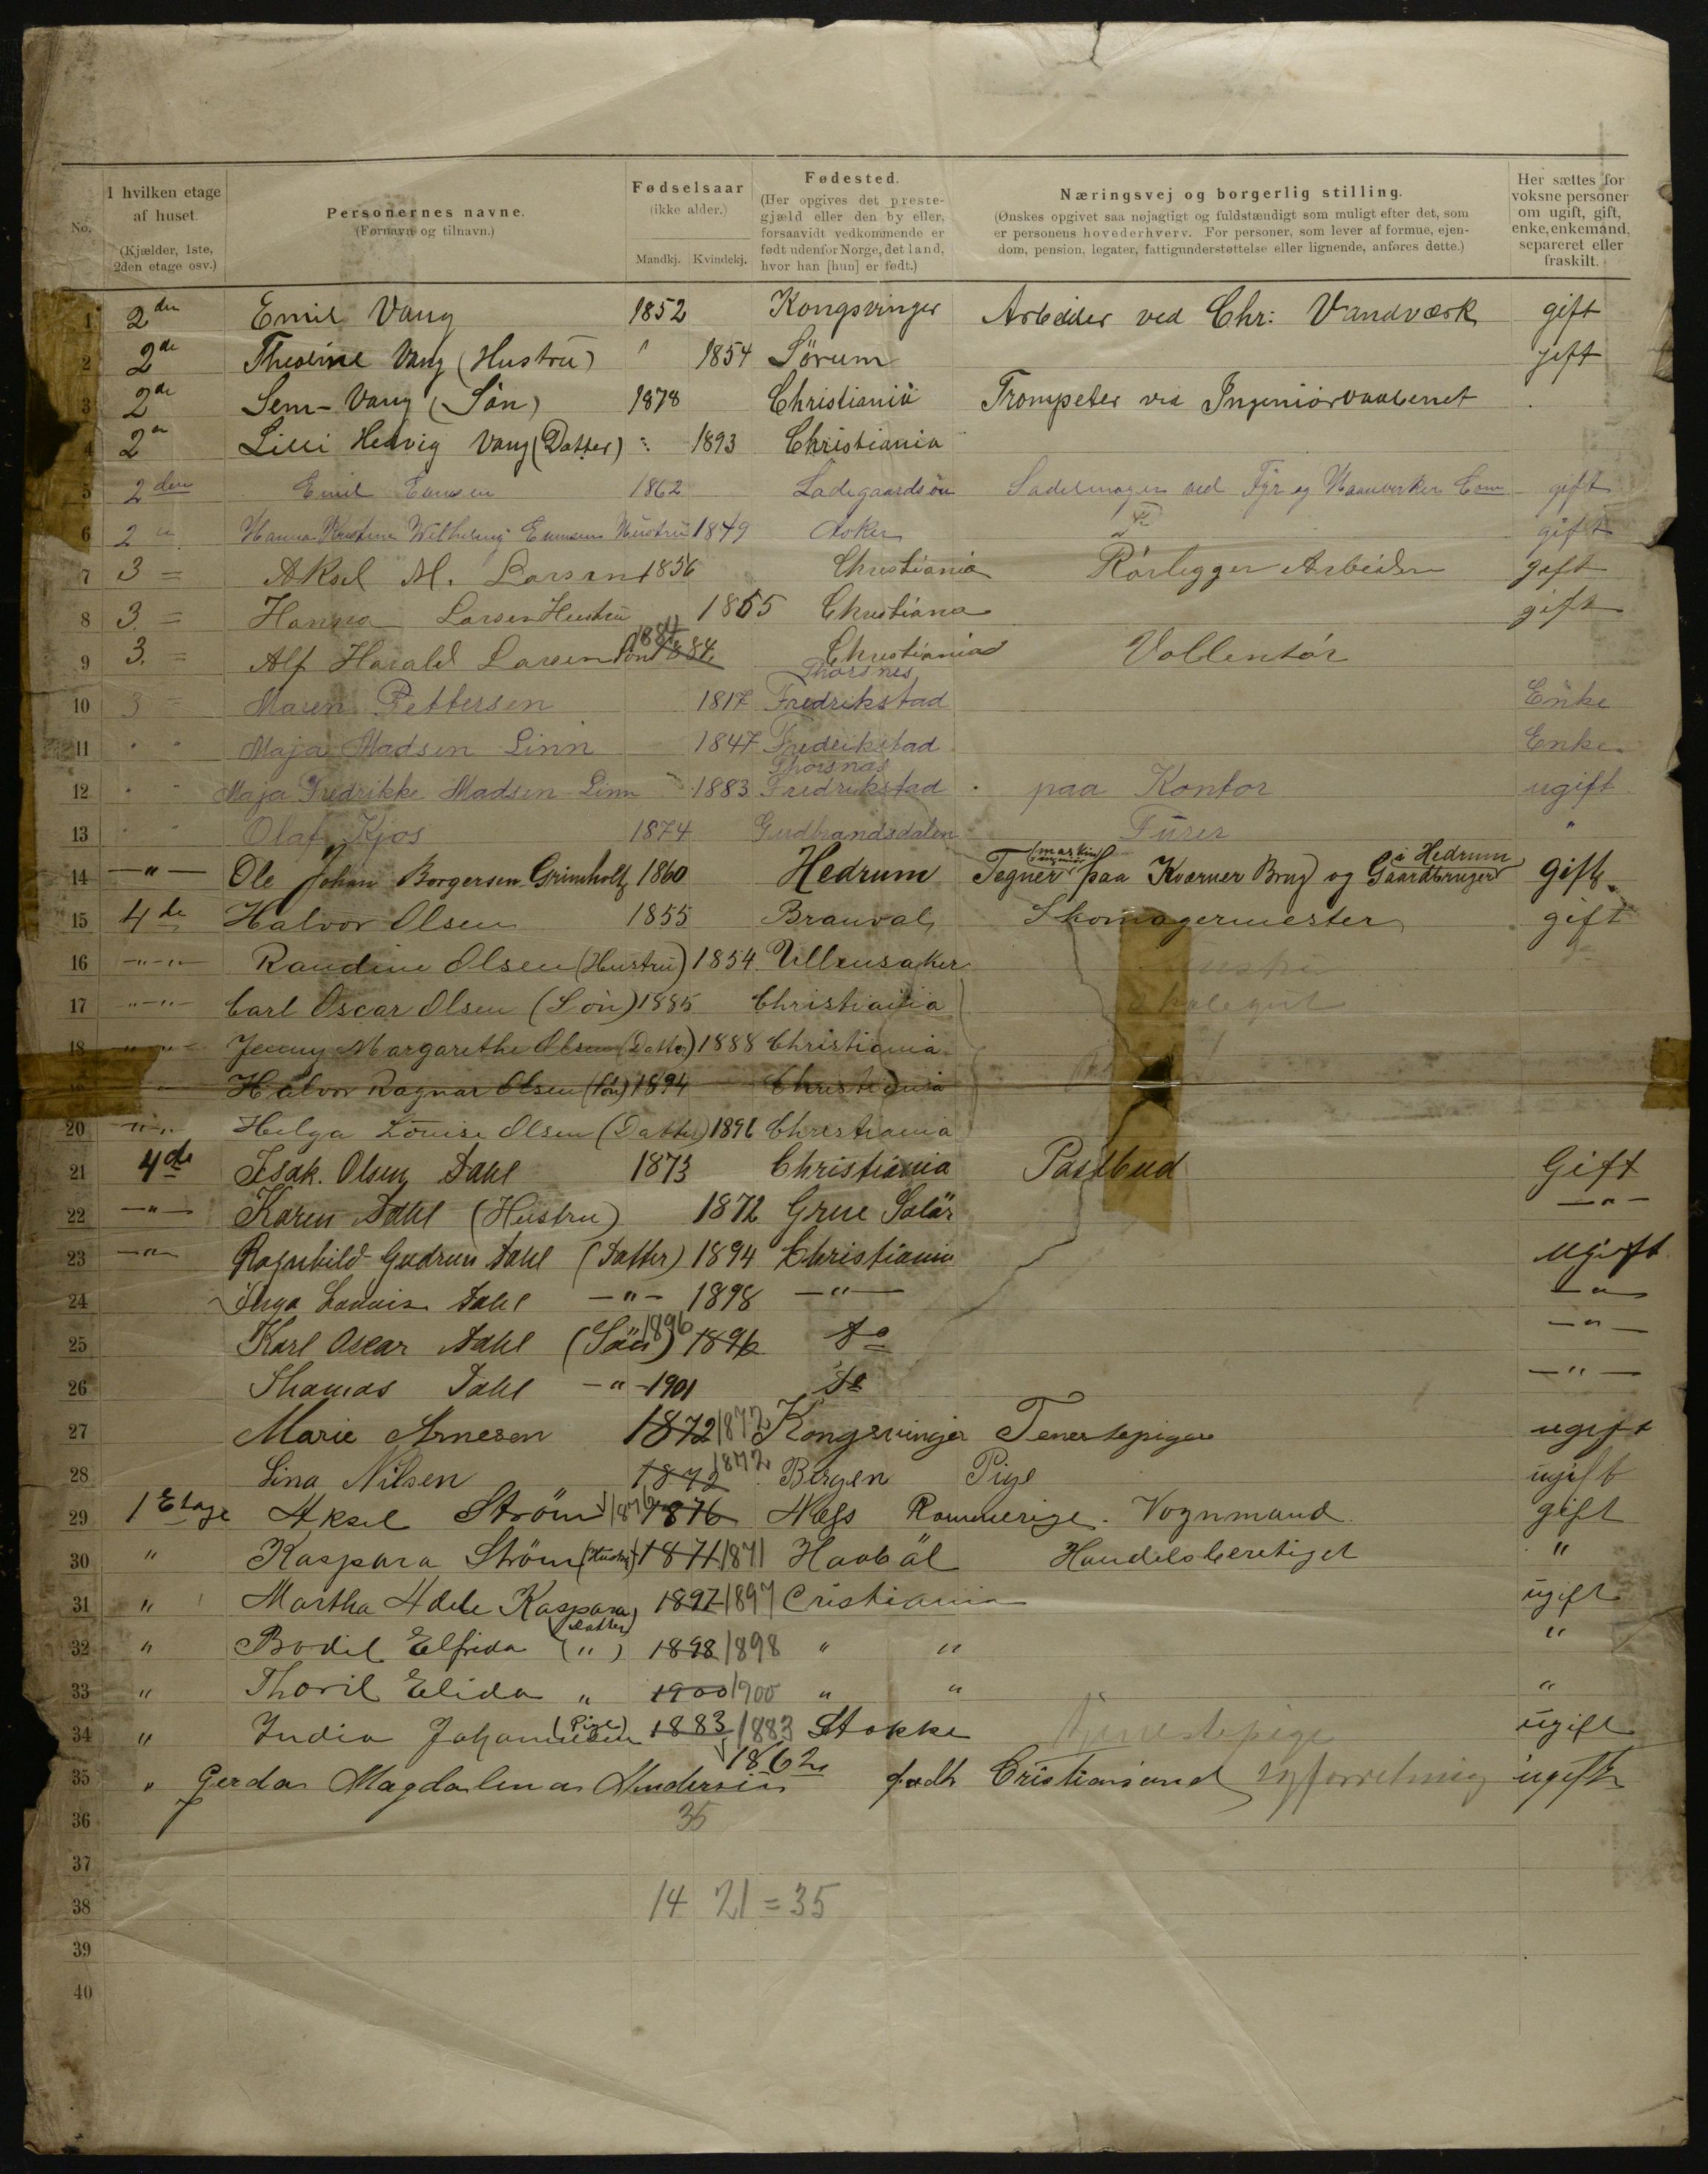 No.
I hvilken etage af huset.
(Kjælder, 1ste, 2den etage osv.)
Personernes navne.
(Fornavn og tilnavn.)
Fødselsaar
(ikke alder.)
Mandkj. Kvindekj.
Fødested.
(Her opgives det prestegjæld eller den by eller, forsaavidt vedkommende er født udenfor Norge, det land, hvor han [hun] er født.)
Næringsvej og borgerlig stilling.
(Ønskes opgivet saa nøjagtigt og fuldstændigt som muligt efter det, som er personens hovederhverv. For personer, som lever af formue, ejendom, pension, legater, fattigunderstøttelse eller lignende, anføres dette.)
Her sættes for voksne personer om ugift, gift, enke, enkemand, separeret eller fraskilt.
1 2den Emil Vang 1852 Kongsvinger Arbeider ved Chr: Vandværk gift
2 2de Vang (Hustrü) " 1854 Sörum gift
3 2de Sem Vang (Sön) 1878 Christiania Trompeter ved Ingeniörvaabenet
4 2en Lilli Hedvig Vang (Datter) " 1893 Christiania
5 2den Emil 1862 Ladegaardsöen Sadelmager ved Fyr og gift
6 2 " Hanna Hustrü 1849 Asker gift
7 3 = Aksel M. Larsen 1856 Christiania Rörlegger Arbeider gift
8 3 = Hanna Larsen Hustru 1855 Christiana gift
9 3. = Alf Harald Larsen Sön 1884 1884 Christiania Vollentör
10 3 = Maren Pettersen 1817 Thorsnes Fredrikstad Enke
11 " " Maja Madsen Linn 1847 Fredrikstad Enke
12 " " Maja Fredrikke Madsen Linn 1883 Thorsnæs Fredrikstad paa Kontor ugift
13 " " Olaf Kjos 1874 Gudbrandsdalen Fürer "
14 —"— Ole Johan Borgersen Grimholt 1860 Hedrum Tegner (maskiningeniør) paa Kværner Brug og Gaardbruger i Hedrum gift
15 4de Halvor Olsen 1855 Branval Skomagermester gift
16 —"— Randine Olsen (Hustru) 1854 Ullensaker
17 "—"— Carl Oscar Olsen (Sön) 1885 Christiania Skolegut
18 "—"— Jenny Margarethe Olsen (Datter) 1888 Christiania
Halvor Ragnar Olsen (Sön) 1894 Christiania
20 "—"— Helga Louise Olsen (Datter) 1896 Christiania
21 4de Isak. Olsen Dahl 1873 Christiania Postbud Gift
22 —"— Karen Dahl (Hustru) 1872 Grue Solör —"—
23 —"— Ragnhild Gudrun Dahl (Datter) 1894 Christiania Ugift
24 Inga Lovise Dahl —"— 1898 —"— —"—
25 Karl Oscar Dahl (Sön) 1896 1896 Do —"—
26 Thomas Dahl —"— 1901 Do —"—
27 Marie Arnesen 1872 1872 Kongsvinger Tenestepige ugift
28 Lina Nilsen 1872 1872 Bergen Pige ugift
29 1 Etage Aksel Ström 1876 1876 Næs Rommerige. Vognmand gift
30 " Kaspara Ström (Hustru) 1871 1871 Haaböl Handelsberetiget "
31 " Martha Adele Kaspara (Datter) 1897 1897 Cristiania ugift
32 " Bodil Elfrida (") 1898 1898 " " "
33 " Thoril Elida " 1900 1900 " " "
34 " India Johannesen (Pige) 1883 1883 Stokke tjenestepige ugift
35 " Gerda Magdalena Andersen 1862 födt Cristiansand syforretning ugift
36 35
37
38 14 21 = 35
39
40